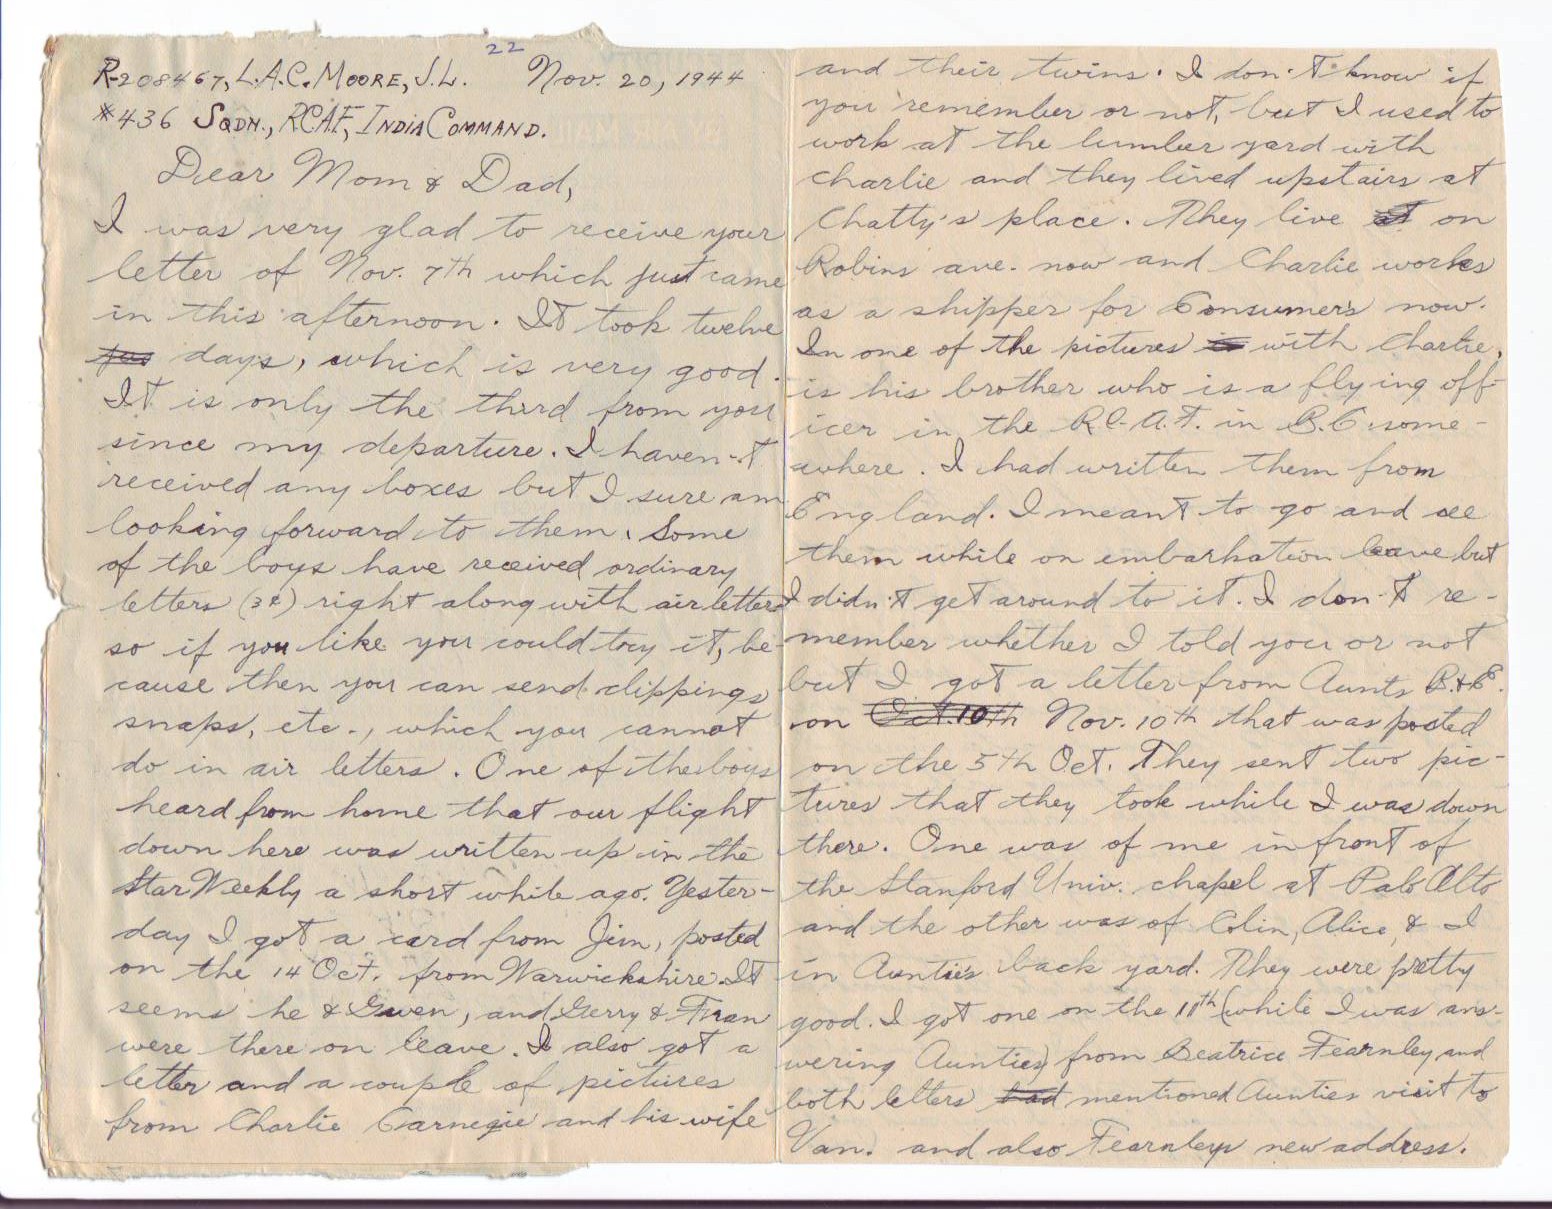 22
R-208467, L.A.C. MOORE, J.L. Nov. 20, 1944
#436 SQDN., RCAF, INDIA COMMAND.
Dear Mom & Dad,
I was very glad to receive your
letter of Nov. 7th which just came
in this afternoon. It took twelve
days, which is very good.
It is only the third from you
since my departure. I haven't
received any boxes but I sure am
looking forward to them. Some
of the boys have received ordinary
letters (3¢) right along with air letters
so if you like you could try it, be-
cause then you can send clippings
snaps, etc., which you cannot
do in air letters. One of the boys
heard from home that our flight
down here was written up in the
Star Weekly a short while ago. Yester-
day I got a card from Jim, posted
on the 14 Oct. from Warwickshire. It
seems he & Gwen, and Gerry & Fran
were there on leave. I also got a
letter and a couple of pictures
from Charlie Carnegie and his wife
and their twins. I don't know if
you remember or not, but I used to
work at the lumber yard with
Charlie and they lived upstairs at
Chatty's place. They live at on
Robins ave. now and Charlie works
as a shipper for Consumer's now.
In one of the pictures is with Charlie,
is his brother who is a flying off-
icer in the R.C.A.F. in B.C. some-
where. I had written them from
England. I meant to go and see
them while on embarkation leave but
I didn't get around to it. I don't re-
member whether I told you or not
but I got a letter from Aunts B. & E.
on Oct. 10th Nov. 10th that was posted
on the 5th Oct. They sent two pic-
tures that they took while I was down
there. One was of me in front of
the Stanford Univ. chapel at Palo Alto
and the other was of Colin, Alice, & I
in Aunties back yard. They were pretty
good. I got one on the 11th (while I was ans-
wering Aunties) from Beatrice Fearnley and
both letters had mentioned Aunties visit to
Van. and also Fearnleys new address.